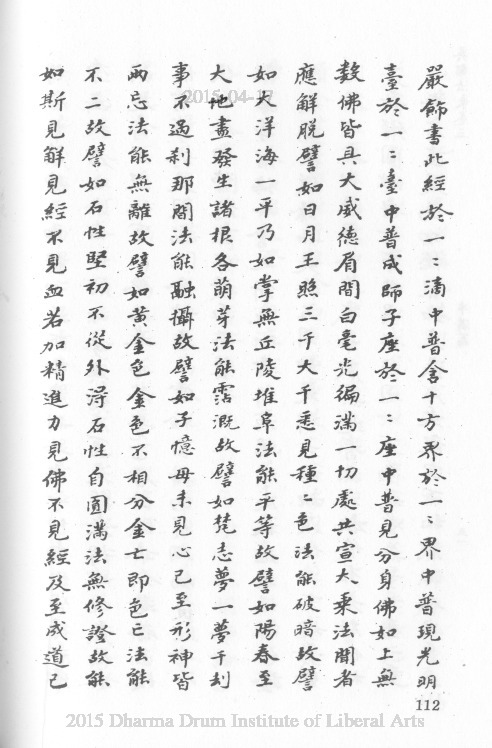 嚴飾書此經於一ミ滴中普含十方界於一ミ界中普現光明
臺於一ミ臺中普成師子座於一ミ座中普見分身佛如上無
數佛皆具大威德眉間白毫光徧滿一切處共宣大乘法聞者
應解脫譬如日月王照三千大千悉見種ミ色法能破暗故譬
如大洋海一平乃如掌無丘陵堆阜法能平等故譬如陽春至
大地盡發生諸根各萌芽法能霑溉故譬如梵志夢一夢千刦
事不過刹那間法能融攝故譬如子憶母未見心已至形神皆
兩忘法能無離故譬如黃金色金色不相分金亡即色亡法能
不二故譬如石性堅初不從外淂石性自圓滿法無修證故能
如斯見解見經不見血若加精進力見佛不見經及至成道已
112
2015-04-17
2015 Dharma Drum Institute of Liberal Arts